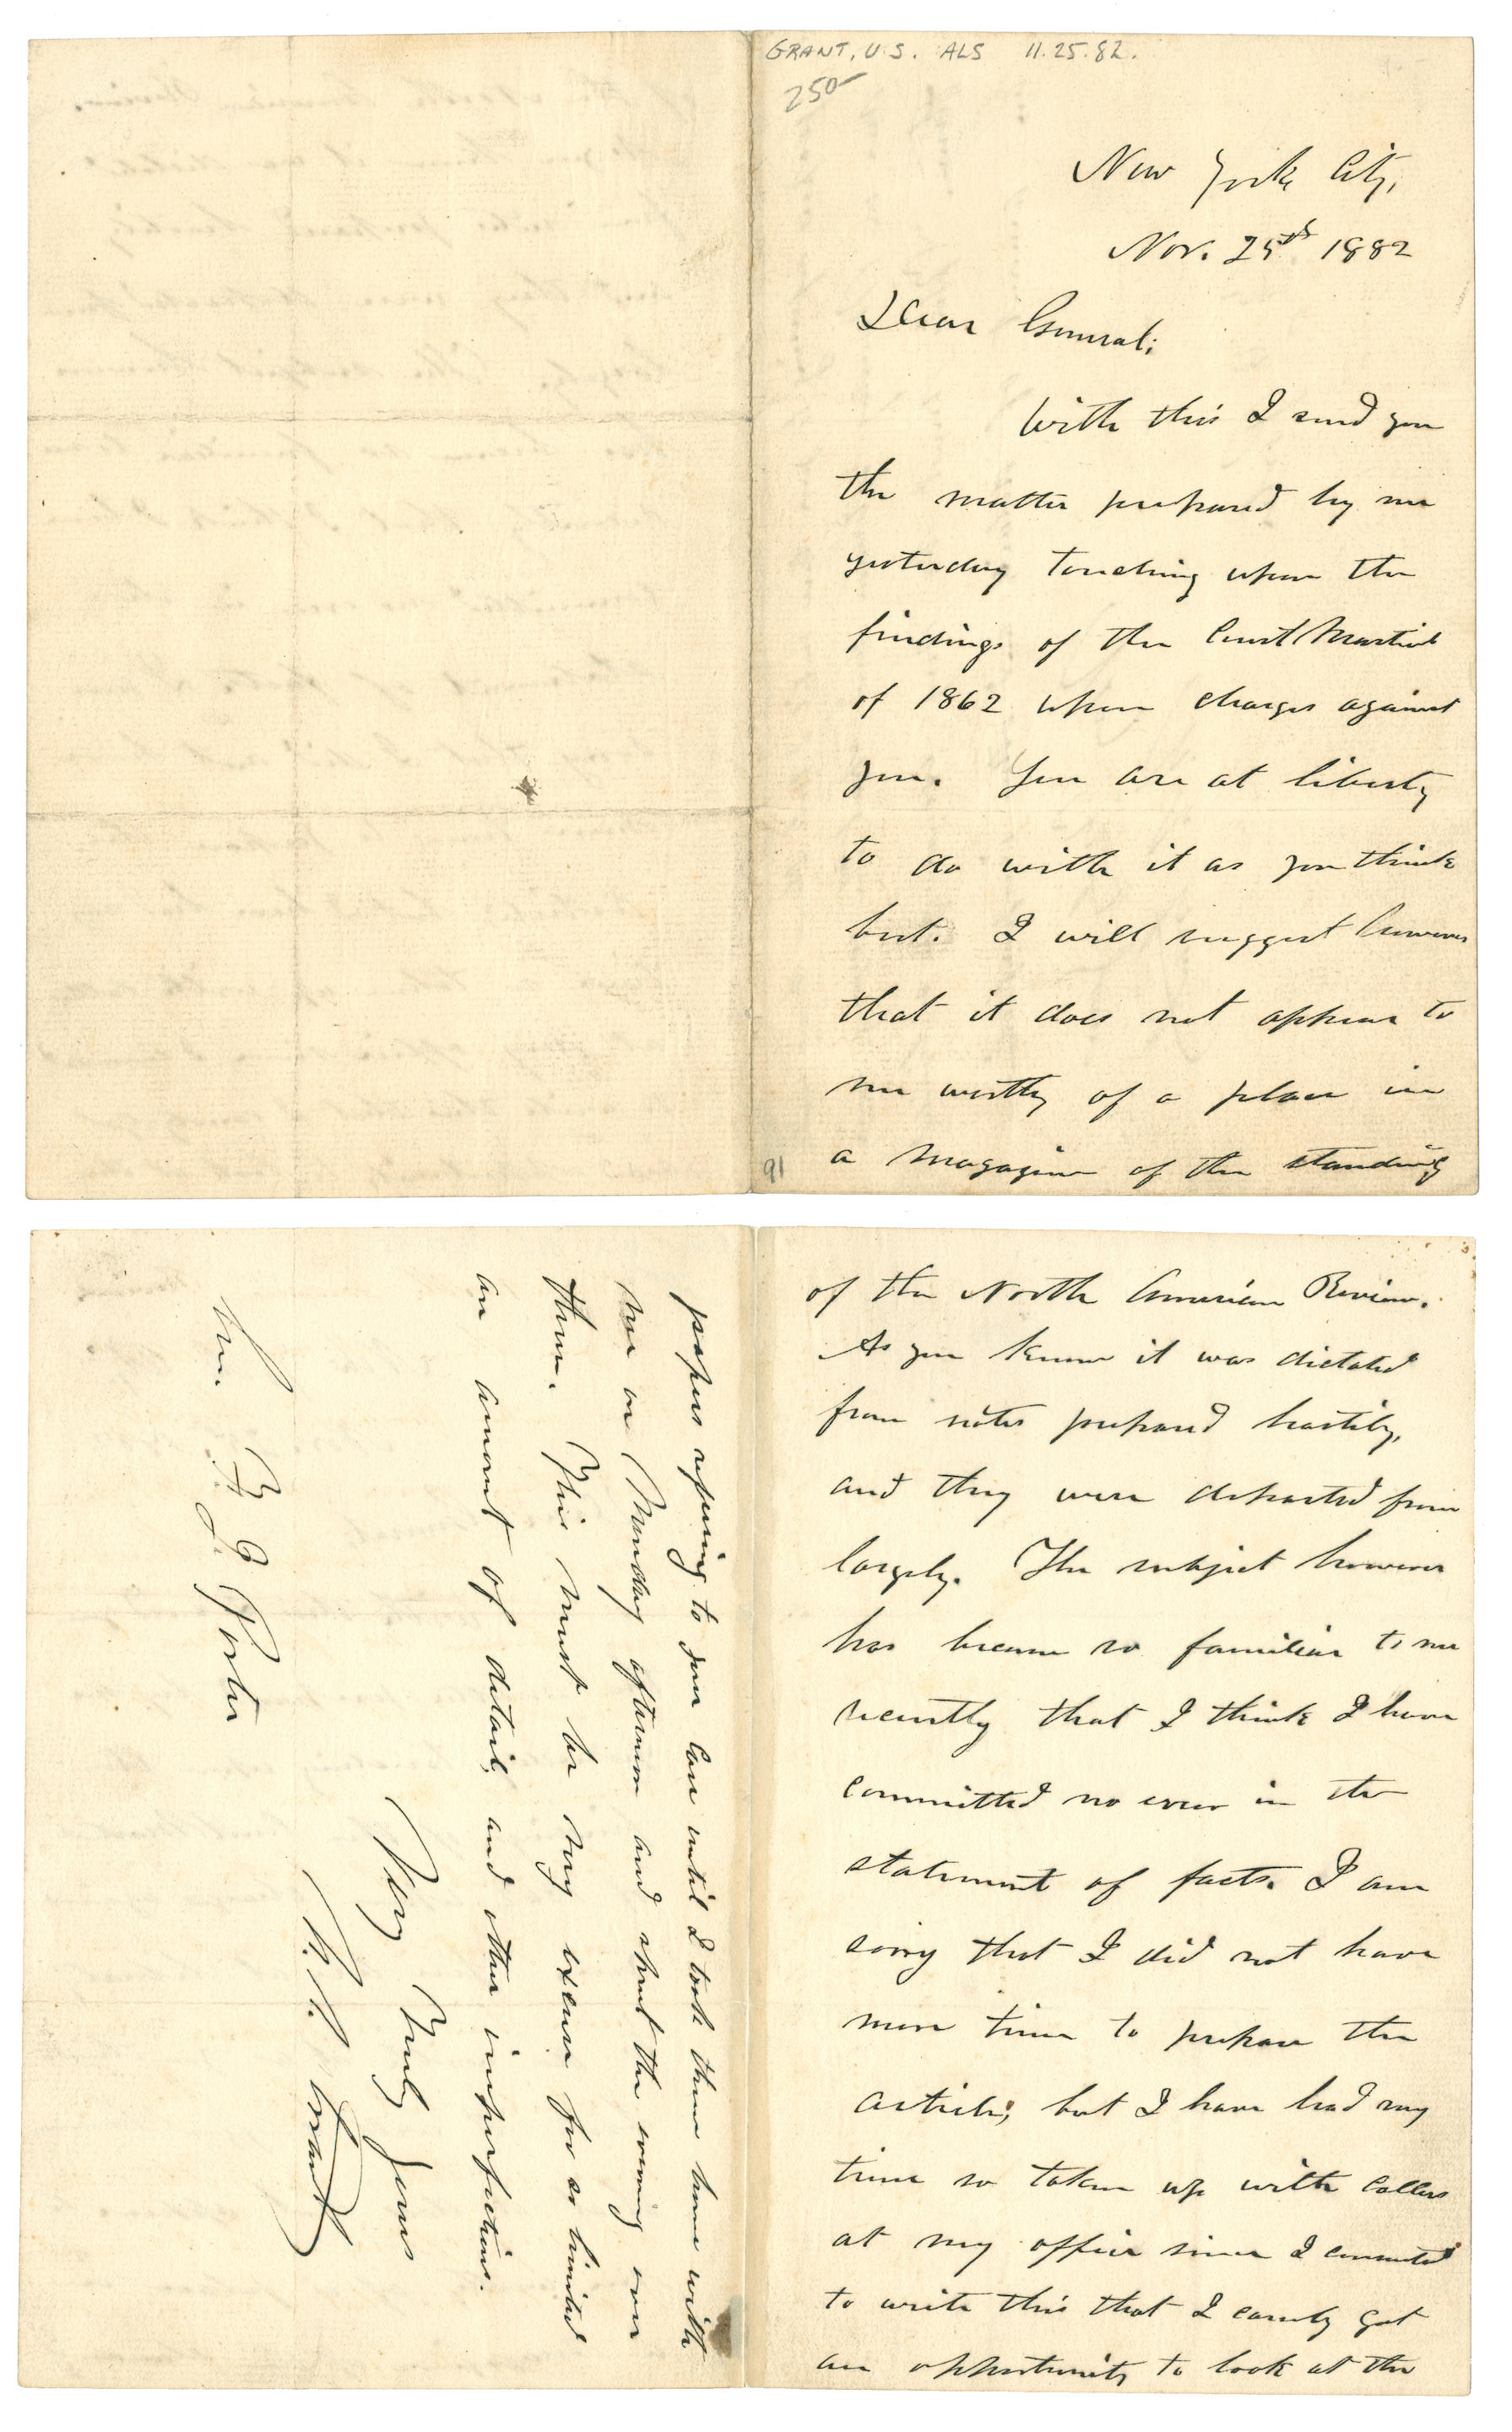 GRANT, U.S. ALS 11.25.82.
250-
New York City,
Nov. 25th 1882
Dear General;
With this I send you
the matter prepared by me
yesterday touching upon the
findings of the Court Martial
of 1862 upon charges against
you. You are at liberty
to do with it as you think
best. I will suggest however
that it does not appear to
me worthy of a place in
a Magazine of the standing
91
of the North American Review.
As you know it was dictated
from notes prepared hastily,
and they were departed from
largely. The subject however
has become so familiar to me
recently that I think I have
committed no error in the
statement of facts. I am
sorry that I did not have
more time to prepare the
article, but I have had my
time so taken up with callers
at my office since I consented
to write this that I
an opportunity to look at the
papers refering to your Case until I took them home with
me on Monday afternoon and spent the evening over
them. This must be my excuse for so limited
an amount of detail, and other imperfections.
Very Truly Yours
U. S. Grant
Gn. F. J. Porter